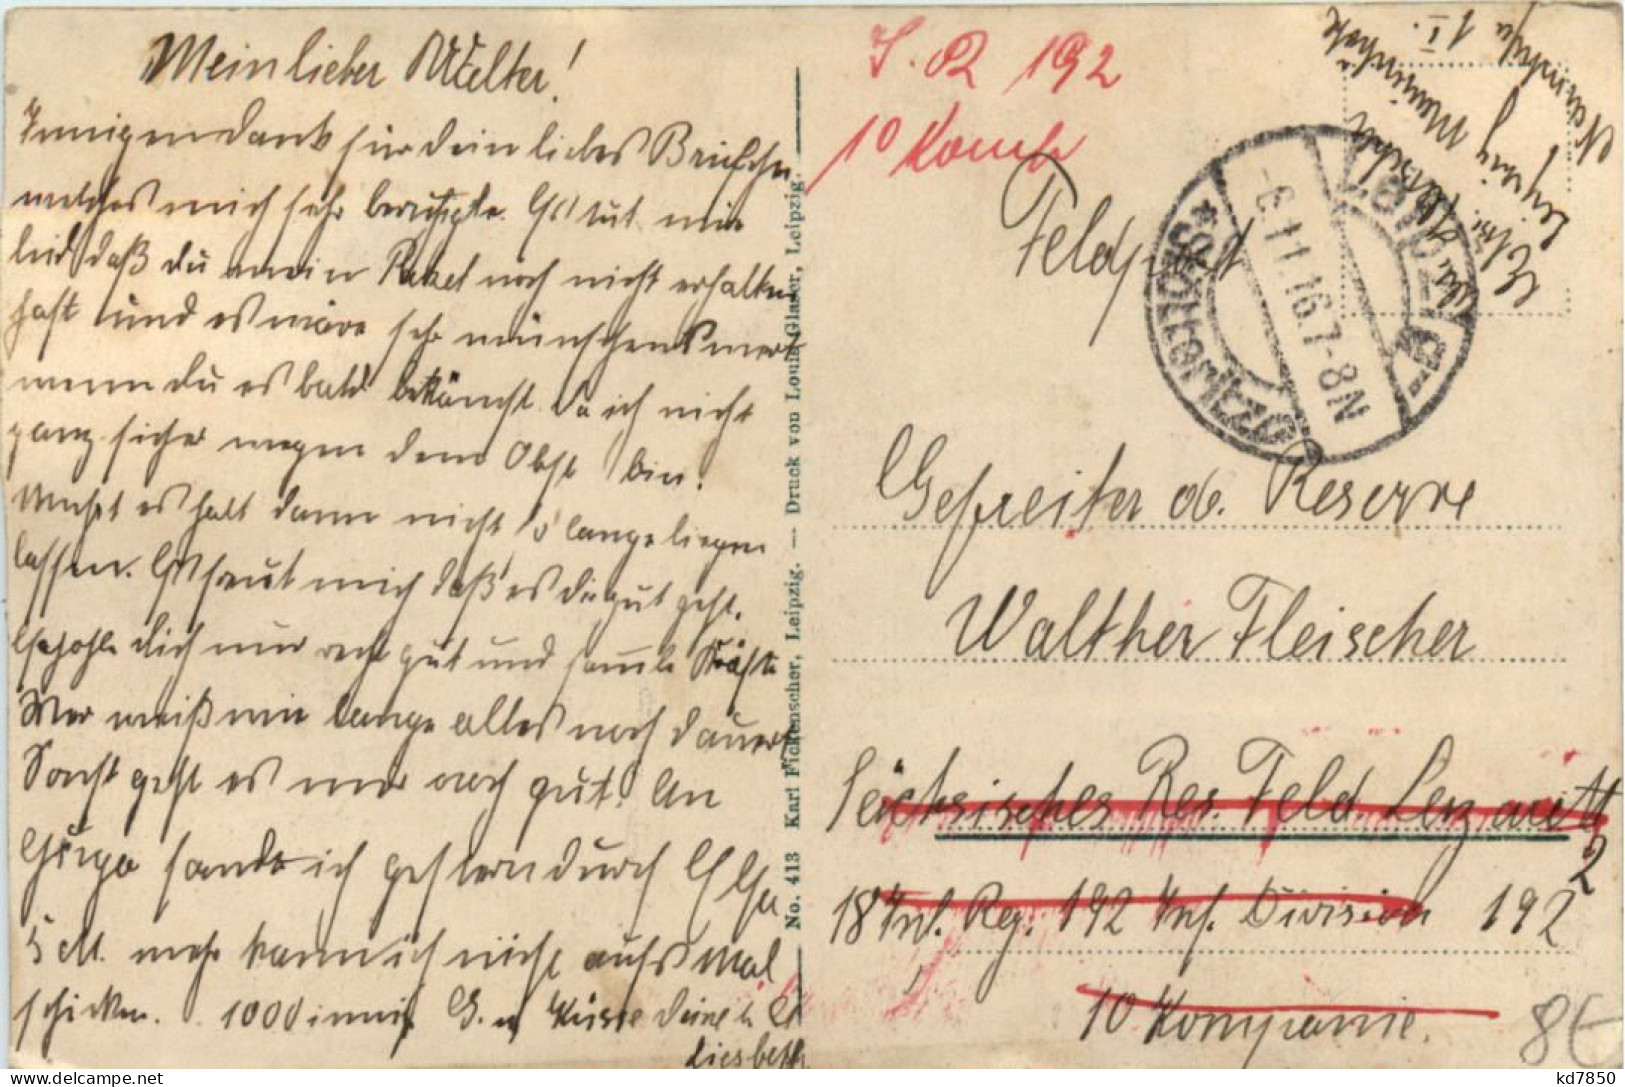 Mein lieber Walter!
Innigen dank für dein liebes Briefchen
welches mich sehr beruhigte. Es tut mir
leid daß du mein Paket noch nicht erhalten
hast und es wäre sehr wünschenswert
wenn du es bald bekämst da ich nicht
ganz sicher wegen dem Obst bin.
es halt dann nicht so lange liegen
lassen. Es freut mich daß es dir gut geht.
Erhole dich nur recht gut und samle Kräfte
Wer weiß wie lange alles noch dauert
Sonst geht es mir noch gut. An
sande ich gestern durch Elsa
5 M. mehr kann ich nicht aufs Mal
schicken. 1000 innige G. u Küsse deine
Liesbeth
No. 413 Karl Fickenscher, Leipzig. — Druck von Louis Glaser, Leipzig.
J. R 192
10 Komp
Feldpost
-6.11.16.7-8N
Gefreiter d. Reserve
Walther Fleischer
Sächsisches Res. Feld Lazarett
2
18 Inf. Reg. 192 Inf. Division 192
10 Kompanie.
8€
kd7850